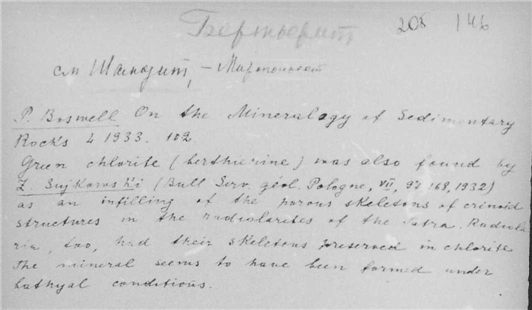 Бертьерит 208 146
см Шамозит, -
P. Boswell On the Mineralogy of Sedimentary
Rocks L 1933. 102
Green chlorite (berthierine) was also found by
Z. Sujkowski (Bull Serv. géol. Pologne, VII, 168, 1932)
as an infilling of the porous skeletons of crinoid
structures in the radiolarites of the Tatra. Radiola
ria, too, had their skeletons preserved in chlorite
The mineral seems to have been formed under
bathyal conditions.